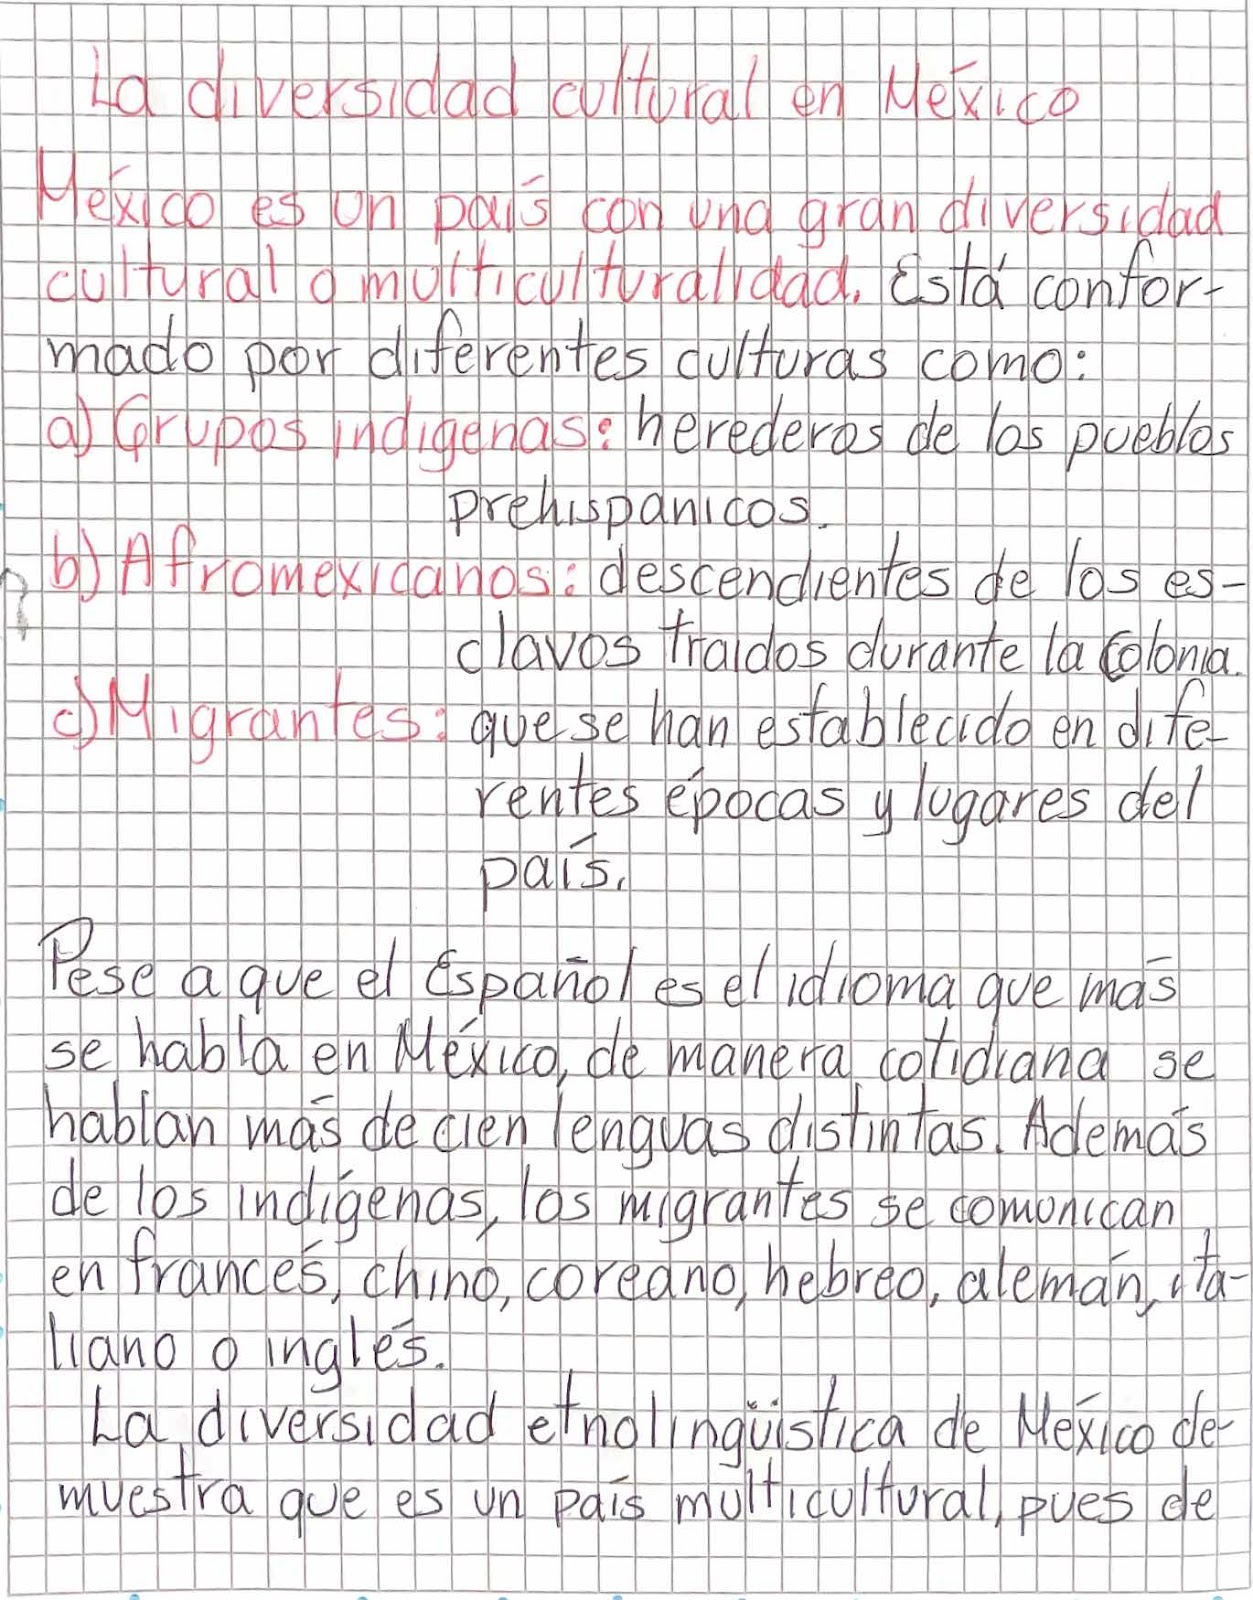 La diversidad cultural en México
México es un país con una gran diversidad
cultural o multiculturalidad. Está confor-
mado por diferentes culturas como:
a) Grupos indigenas: herederos de los pueblos
prehispanicos.
b) Afromexicanos: descendientes de los es-
clavos traidos durante la Colonia.
c) Migrantes: que se han establecido en dife-
rentes épocas y lugares del
país.
Pese a que el Español es el idioma que más
se habla en México, de manera cotidiana se
hablan más de cien lenguas distintas. Además
de los indígenas, los migrantes se comonican
en francés, chino, coreano, hebreo, alemán, ita-
liano o inglés.
La diversidad etnolingüística de México de-
muestra que es un país multicultural, pues de